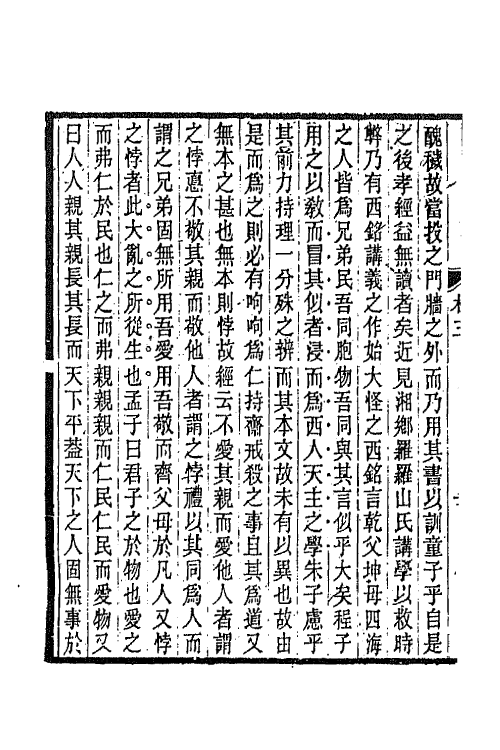 醜穢故當投之門牆之外而乃用其書以訓童子乎自是
之後孝經益無讀者矣近見湘鄉羅羅山氏講學以救時
弊乃有西銘講義之作始大怪之西銘言乾父坤母四海
之人皆爲兄弟民吾同胞物吾同與其言似乎大矣程子
用之以敎而冒其似者浸而爲西人天主之學朱子慮乎
其前力持理一分殊之辨而其本文故未有以異也故由
是而爲之則必有呴呴爲仁持齋戒殺之事且其爲道又
無本之甚也無本則悖故經云不愛其親而愛他人者謂
之悖悳不敬其親而敬他人者謂之悖禮以其同爲人而
謂之兄弟固無所用吾愛用吾敬而齊父母於凡人又悖
之悖者此大亂之所從生也孟子曰君子之於物也愛之
而弗仁於民也仁之而弗親親親而仁民仁民而愛物又
曰人人親其親長其長而天下平葢天下之人固無事於